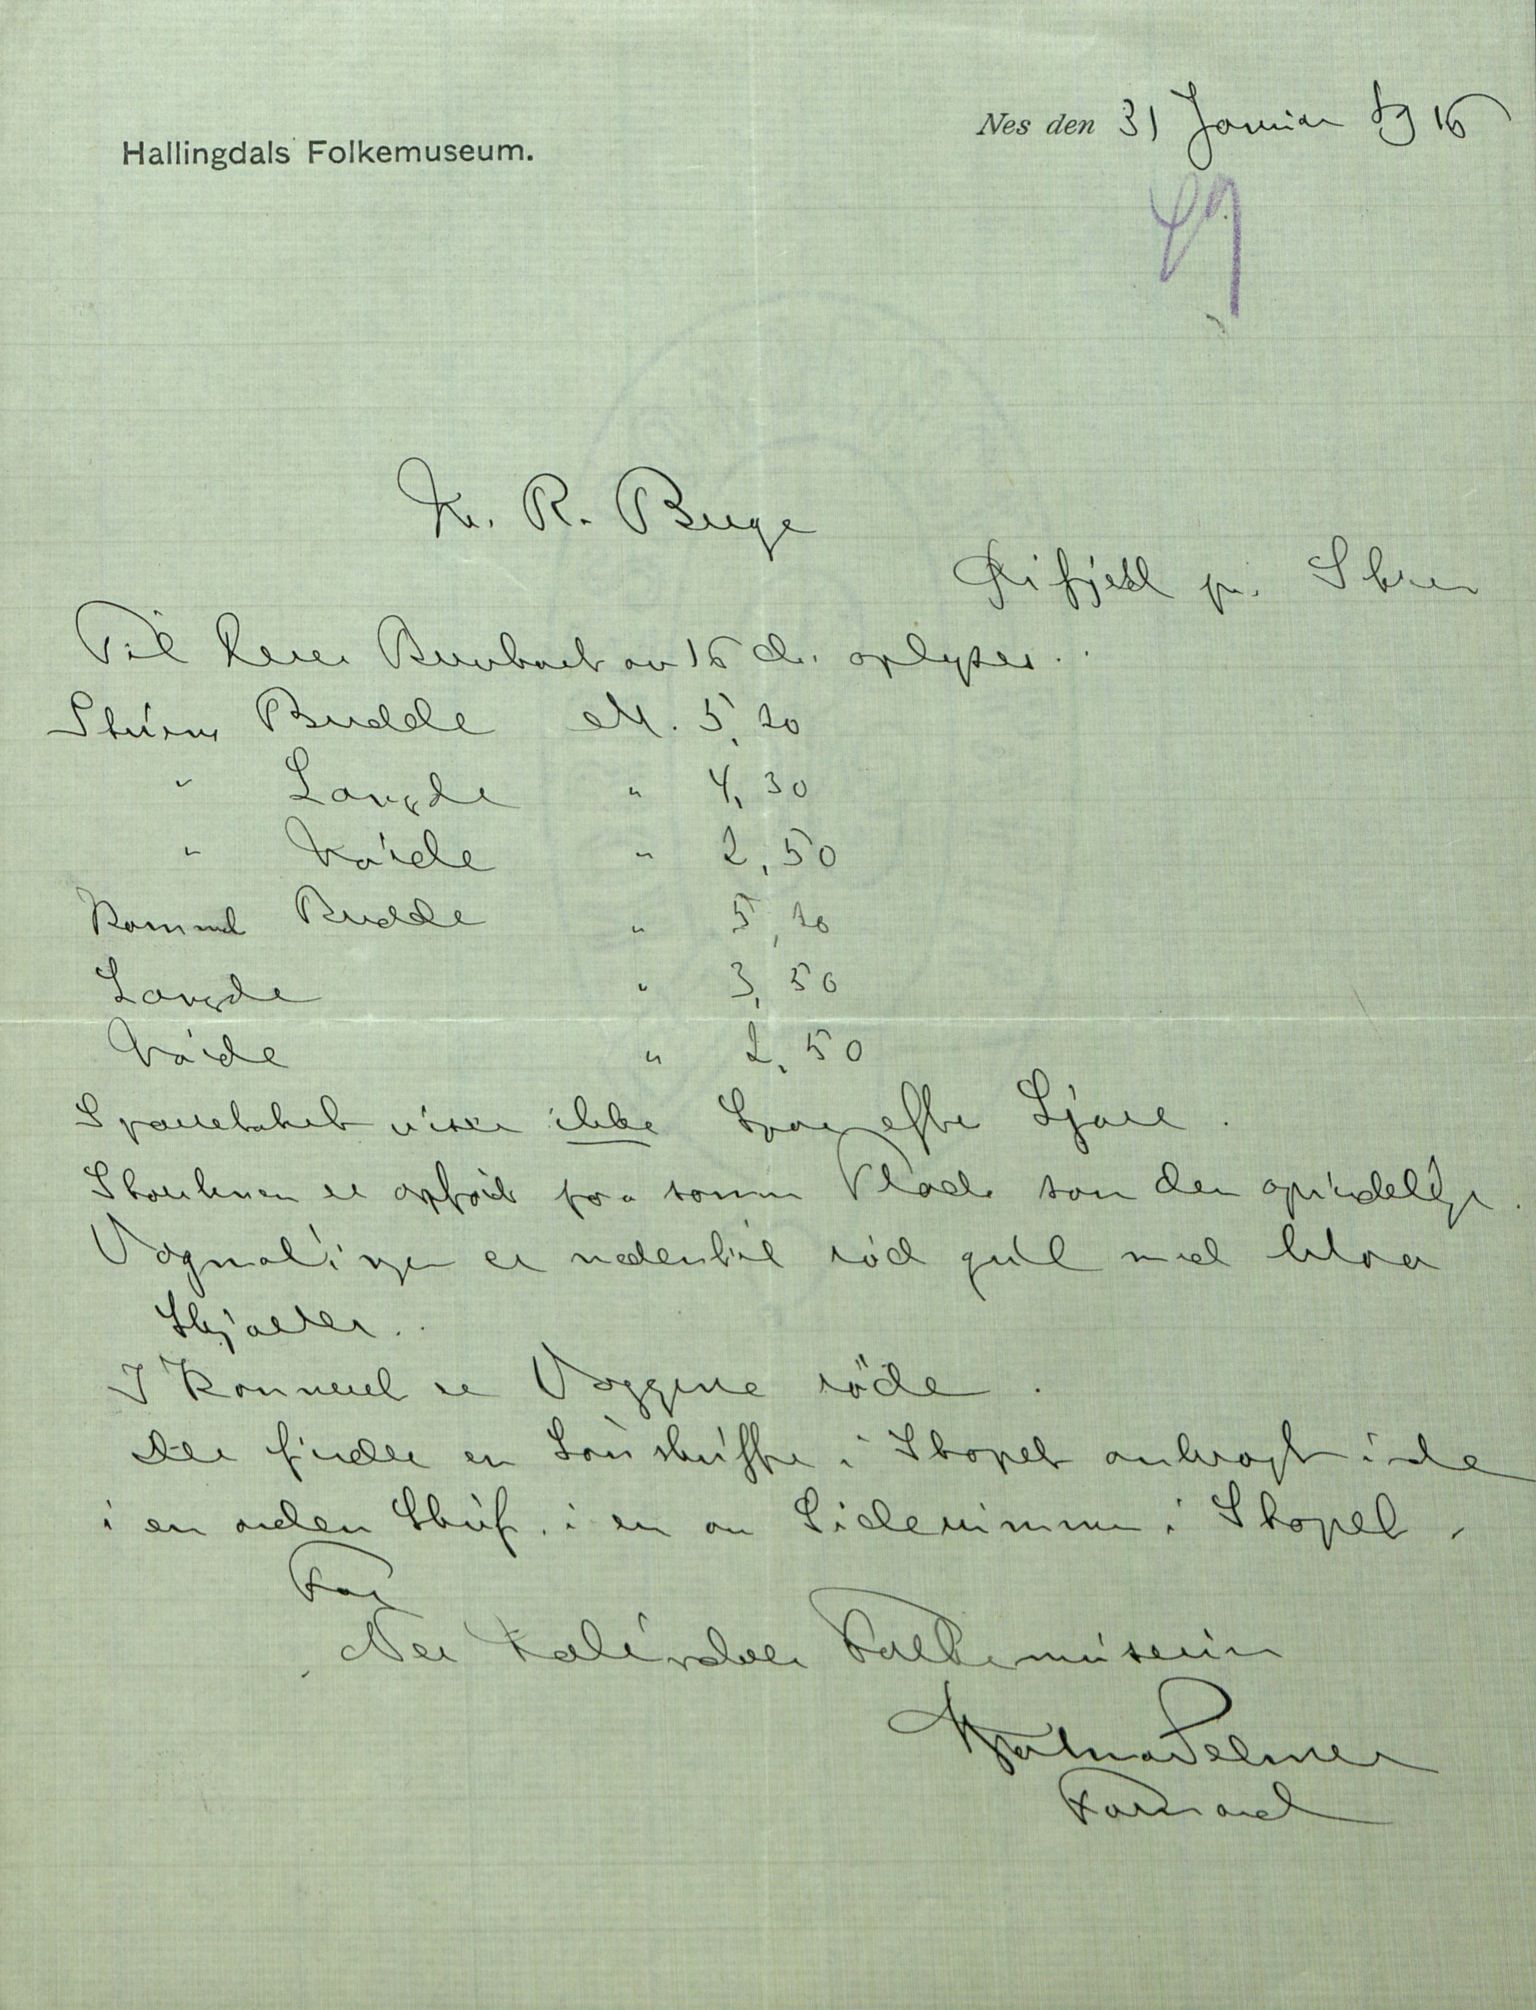 Nes den 31 Januar 1916
Hallingdals Folkemuseum.
49
Hr. R. Berge
pr. Skien
Til Deres Brevkort av 16 ds. oplyses.
Stuens Bredde M. 5,20
" Længde " 4,30
" Høide " 2,50
Kammed Bredde " 5,20
Længde " 3,50
Høide " 2,50
Sperretaket viser ikke Spor efter Ljore.
er opført paa samme Plads som den oprindelige.
er nedentil rød gul med blaa
I Kammed er Væggene røde.
Der findes en Lønskuffe i Skapet anbragt inde
i en anden Skuf. i en av Siderummene i Skapet.
For
Nes Hallingdals Folkemuseum
Formand